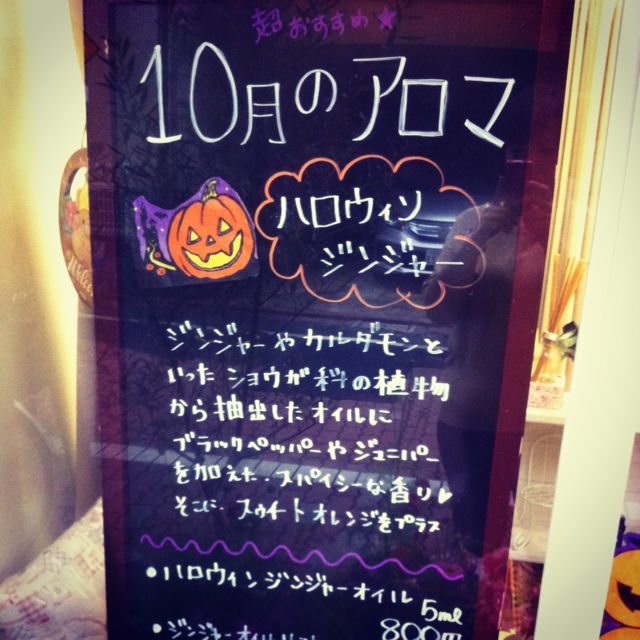 超おすすめ★
10月のアロマ
ハロウィン
ジンジャー
ジンジャーやカルダモンと
いったショウガ科の植物
から抽出したオイルに
ブラックペッパーやジュニパー
を加えた‥スパイシーな香り♥
そこに、スウィートオレンジをプラス
•ハロウィンジンジャーオイル
5ml
800
•ジンジャーオイル